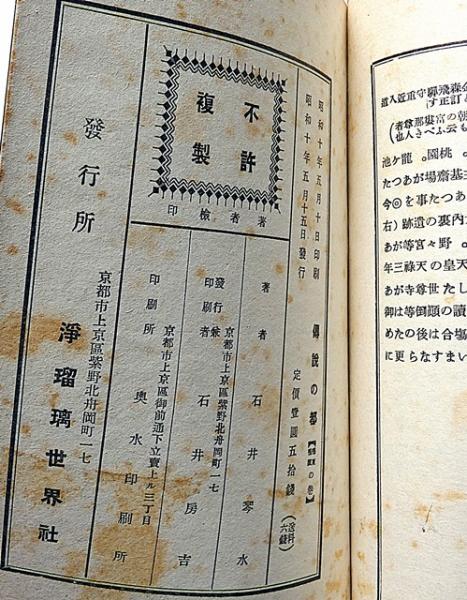 金森飛驒守重近入道
訂正す
朝の宮嬖那尊者
と云ふべき人也
桃園。龍ケ池
主基齋場があつた
あつた事を◎今
内裏の遺跡(右
野々宮等があ
天皇の天祿三年
した世尊寺があ
讀の顚倒等は御
合場は後のため
更にらなすまい
昭和十年五月十日印刷
昭和十年五月十五日發行
不許
複製
著者檢印
傳說の都
の卷
定價壹圓五拾錢
(送料六錢)
著者 石井琴水
京都市上京區紫野北舟岡町一七
發行兼印刷者 石井房吉
京都市上京區御前通下立賣上ル三丁目
印刷所 奧水印刷所
京都市上京區紫野北舟岡町一七
發行所 淨瑠璃世界社